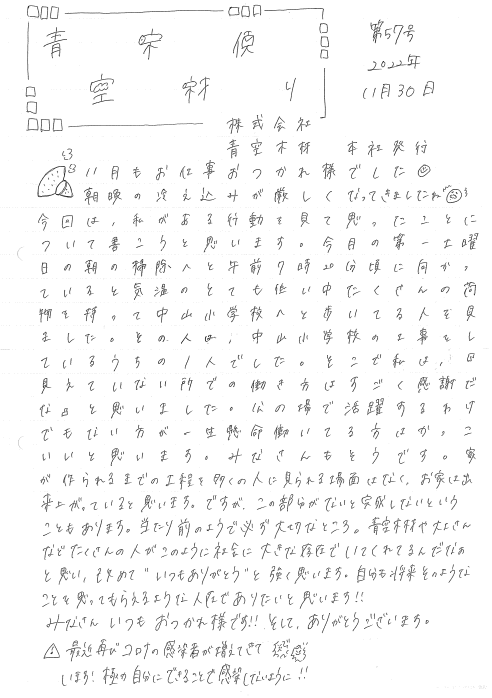 青空家族便り
第57号
2022年
11月30日
株式会社
青空木材 本社発行
11月もお仕事おつかれ様でした
朝晩の冷え込みが厳しくなってきましたね
今回は、私がある行動を見て思ったことに
ついて書こうと思います。今月の第一土曜
日の朝の掃除へと午前7時20分頃に向かっ
ていると気温のとても低い中たくさんの荷
物を持って中山小学校へと歩いてる人を見
ました。その人は、中山小学校の工事をし
ているうちの1人でした。そこで私は、目
見えていない所での働き方はすごく感謝だ
なと思いました。公の場で活躍するわけ
でもない方が一生懸命働いてる方はかっこ
いいと思います。みなさんもそうです。家
が作られるまでの工程を多くの人に見られる場面はなく、お家は出
来上がっていると思います。ですが、この部分がないと完成しないという
こともあります。当たり前のようで必ず大切なところ。青空木材や大工さん
などたくさんの人がこのように社会に大きな存在でしてくれてるんだなぁ
と思い、改めて"いつもありがとう"と強く思います。自分も将来そのような
ことを思ってもらえるような人材でありたいと思います!!
みなさんいつもおつかれ様です!!そして、ありがとうございます。
最近再びコロナの感染者が増えてきて
います!極力自分にできることで感染しないように!!